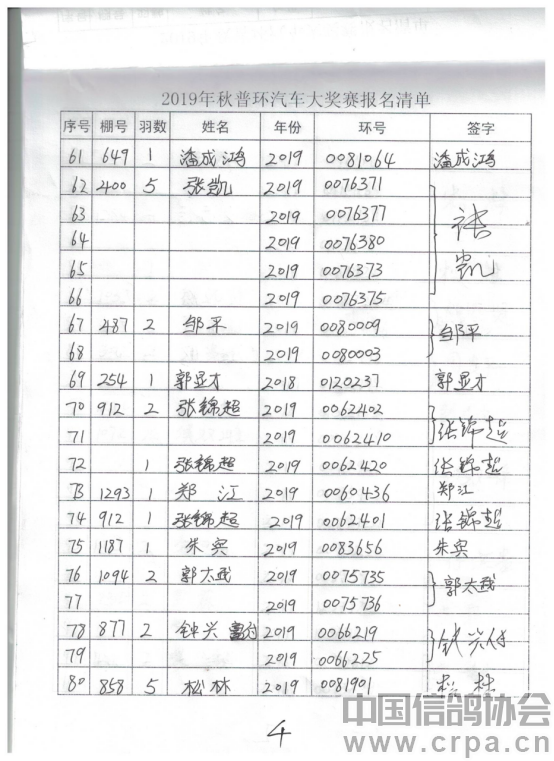 2019年秋普环汽车大奖赛报名清单
序号 棚号 羽数 姓名 年份 环号 签字
61 649 1 潘成鸿 2019 0081064 潘成鸿
62 400 5 张凯 2019 0076371
63 2019 0076377 张
64 2019 0076380
65 2019 0076373 凯
66 2019 0076375
67 487 2 邹平 2019 0080009 邹平
68 2019 0080003
69 254 1 郭显才 2018 0120237 郭显才
70 912 2 张锦超 2019 0062402
71 2019 0062410 张锦超
72 1 张锦超 2019 0062420 张锦超
73 1293 1 郑江 2019 0060436 郑江
74 912 1 张锦超 2019 0062401 张锦超
75 1187 1 朱宾 2019 0083656 朱宾
76 1094 2 郭太 2019 0075735 郭太
77 2019 0075736
78 877 2 钟兴 2019 0066219
79 2019 0066225
80 858 5 松林 2019 0081901 松林
4
中国信鸽协会
www.crpa.cn